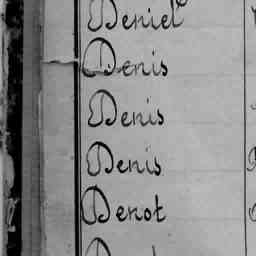 Deniel
Denis
Denis
Denis
Denot